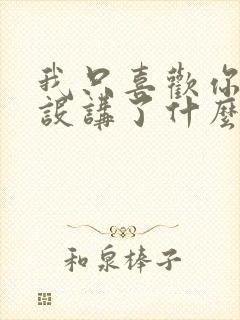 我只喜歡你
設講了什麼
和泉棒子